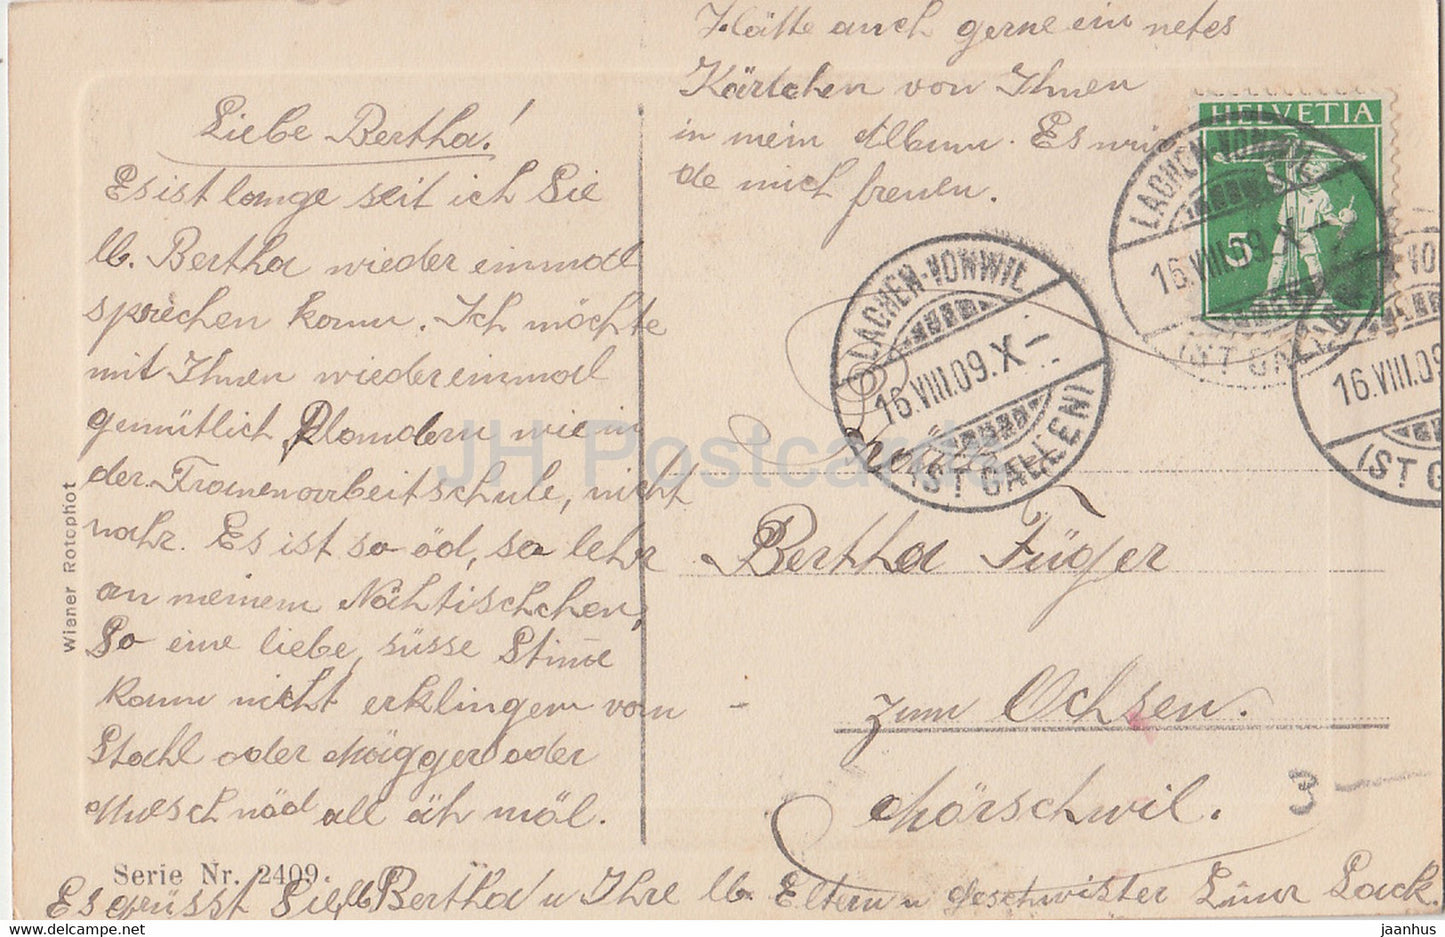 Hätte auch gerne ein netes
Kärtchen von Ihnen
in mein Album. Es wür
de mich freuen.
Liebe Bertha!
Es ist lange seit ich Sie
lb. Bertha wieder einmal
sprechen konn. Ich möchte
mit Ihnen wiedereinmal
gemütlich Plaudern wie in
der Frauenarbeitschule, nicht
wahr. Es ist so öd, so lehr
an meinem Nähtischchen,
So eine liebe, süsse Stime
kann nicht erklingen vom
Stahl oder Mägger oder
Muesch nöd all äh möl.
Es grüsst Sie lb Bertha u Ihre lb. Eltern u Geschwister Lina Lack.
HELVETIA
5
LACHEN-VONWIL
16.VIII.09.X-
(ST GALLEN)
LACHEN-VONWIL
16.VIII.09.X-
(ST GALLEN)
16.VIII.09
(ST G
Bertha Füger
zum Ochsen.
Mörschwil.
3 -
Wiener Rotophot
Serie Nr. 2409.
JH Postcards
jaanhus
www.delcampe.net